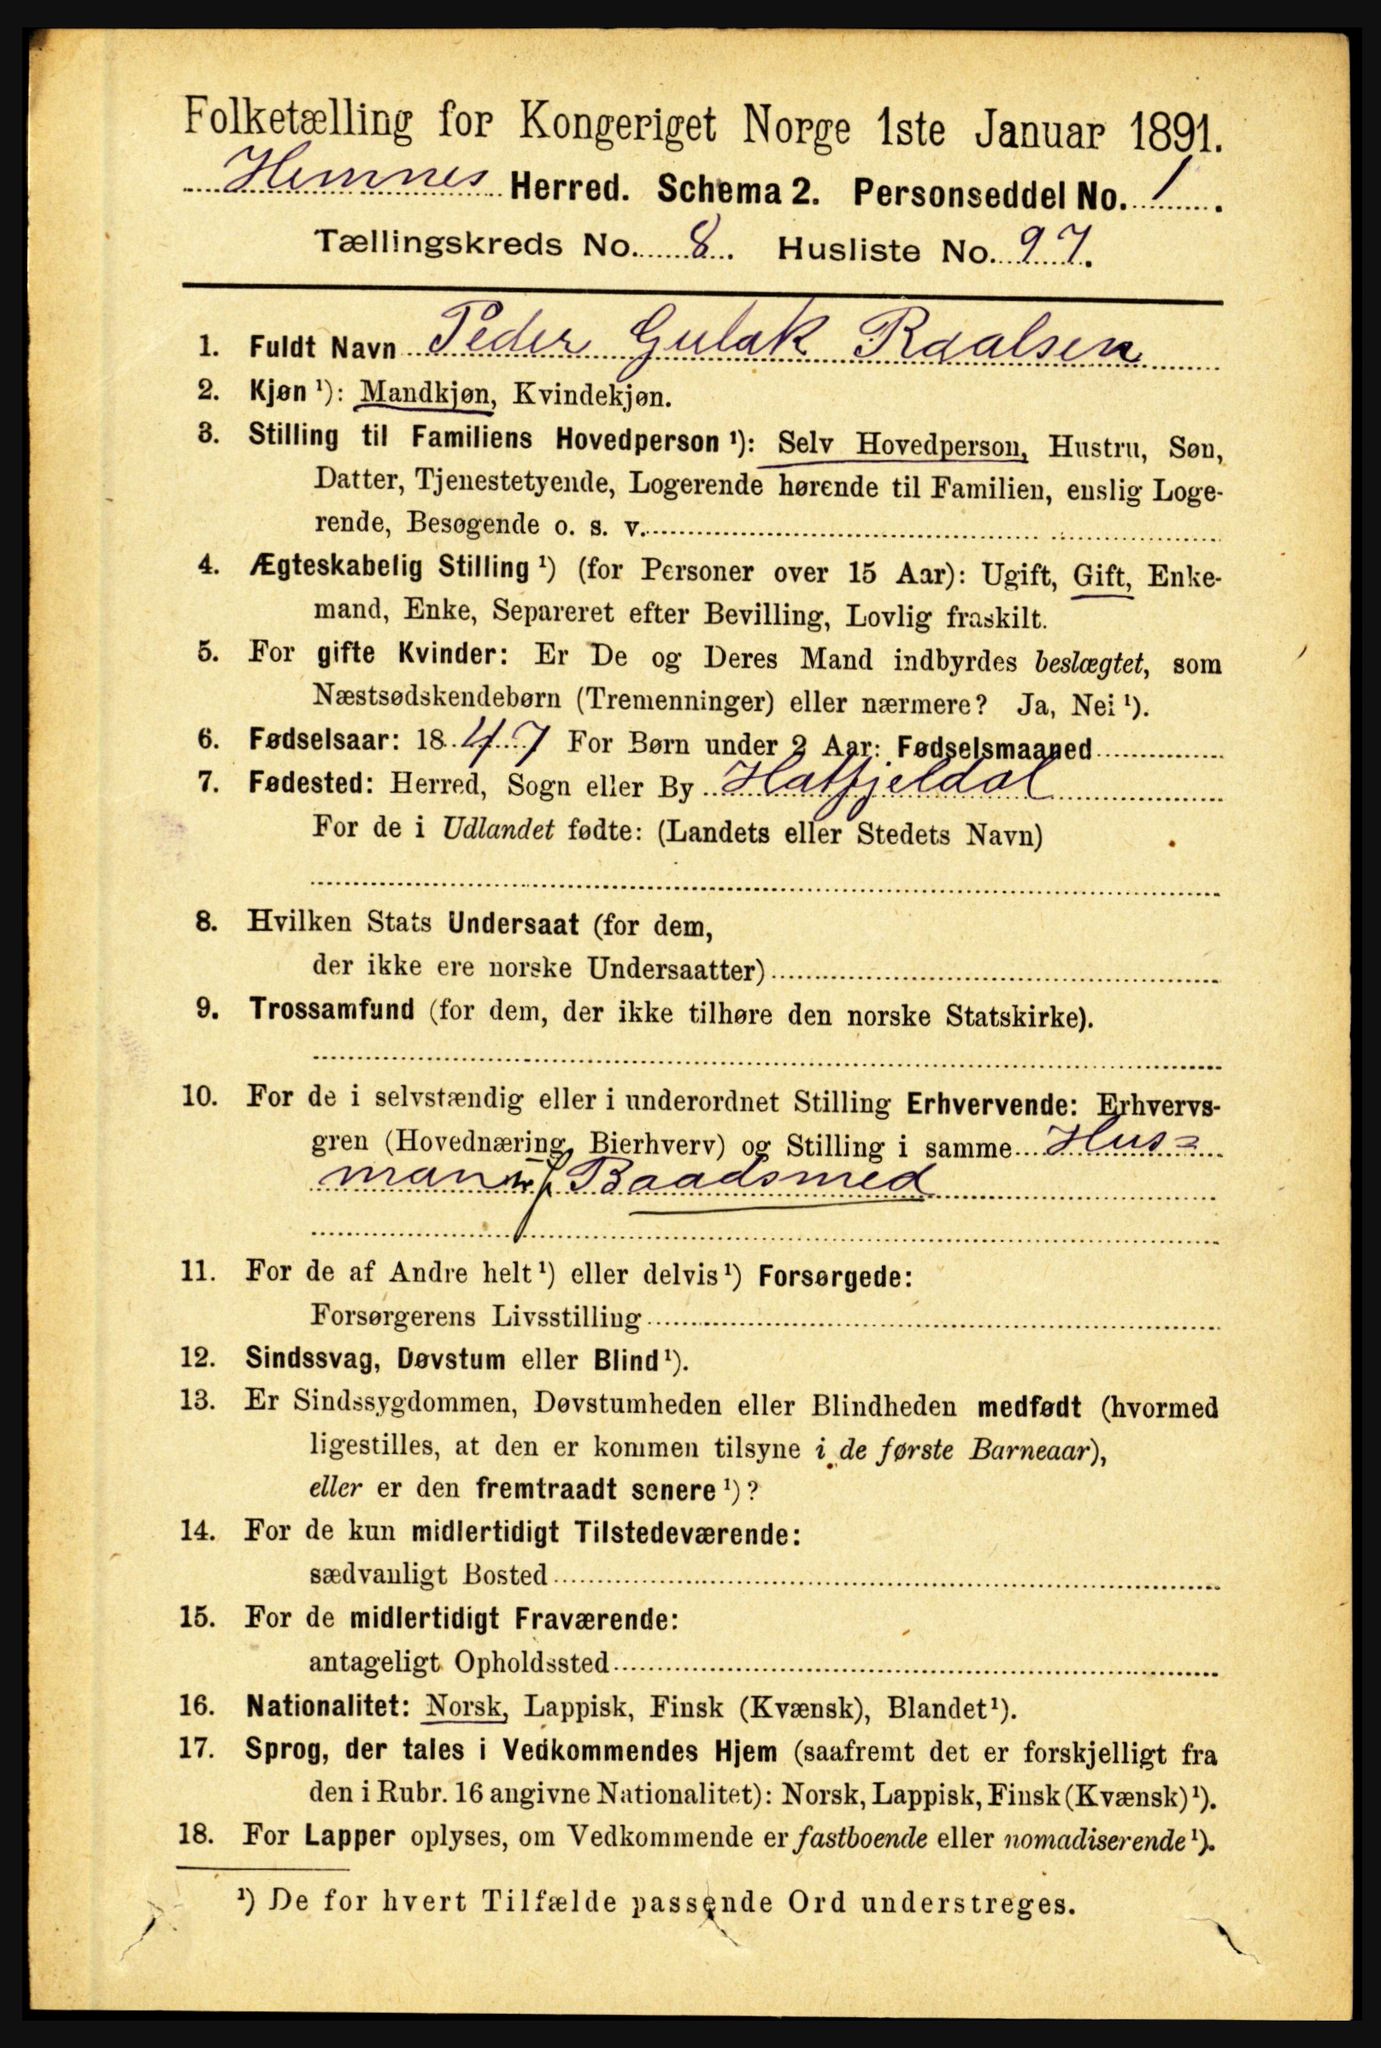 Folketælling for Kongeriget Norge 1ste Januar 1891.
Hemnes Herred. Schema 2. Personseddel No. 1.
Tællingskreds No. 8. Husliste No. 97.
1. Fuldt Navn Peder Gulak Raalsen
2. Kjøn ¹): Mandkjøn, Kvindekjøn.
3. Stilling til Familiens Hovedperson ¹): Selv Hovedperson, Hustru, Søn,
Datter, Tjenestetyende, Logerende hørende til Familien, enslig Loge-
rende, Besøgende o. s. v.
4. Ægteskabelig Stilling ¹) (for Personer over 15 Aar): Ugift, Gift, Enke-
mand, Enke, Separeret efter Bevilling, Lovlig fraskilt.
5. For gifte Kvinder: Er De og Deres Mand indbyrdes beslægtet, som
Næstsødskendebørn (Tremenninger) eller nærmere? Ja, Nei ¹).
6. Fødselsaar: 1847 For Børn under 2 Aar: Fødselsmaaned
7. Fødested: Herred, Sogn eller By Hatfjeldal
For de i Udlandet fødte: (Landets eller Stedets Navn)
8. Hvilken Stats Undersaat (for dem,
der ikke ere norske Undersaatter)
9. Trossamfund (for dem, der ikke tilhøre den norske Statskirke).
10. For de i selvstændig eller i underordnet Stilling Erhvervende: Erhvervs-
gren (Hovednæring, Bierhverv) og Stilling i samme Hus=
mand Baadsmed
11. For de af Andre helt ¹) eller delvis ¹) Forsørgede:
Forsørgerens Livsstilling
12. Sindssvag, Døvstum eller Blind ¹).
13. Er Sindssygdommen, Døvstumheden eller Blindheden medfødt (hvormed
ligestilles, at den er kommen tilsyne i de første Barneaar),
eller er den fremtraadt senere ¹)?
14. For de kun midlertidigt Tilstedeværende:
sædvanligt Bosted
15. For de midlertidigt Fraværende:
antageligt Opholdssted
16. Nationalitet: Norsk, Lappisk, Finsk (Kvænsk), Blandet ¹).
17. Sprog, der tales i Vedkommendes Hjem (saafremt det er forskjelligt fra
den i Rubr. 16 angivne Nationalitet): Norsk, Lappisk, Finsk (Kvænsk) ¹).
18. For Lapper oplyses, om Vedkommende er fastboende eller nomadiserende ¹).
¹) De for hvert Tilfælde passende Ord understreges.